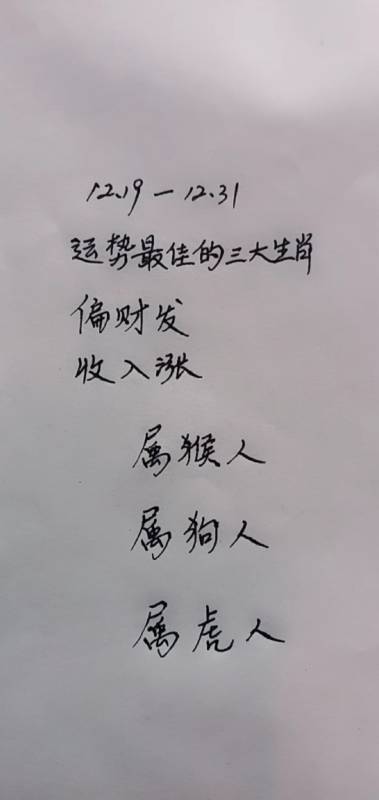 12.19一12.31
运势最佳的三大生肖
偏财发
收入涨
属猴人
属狗人
属虎人